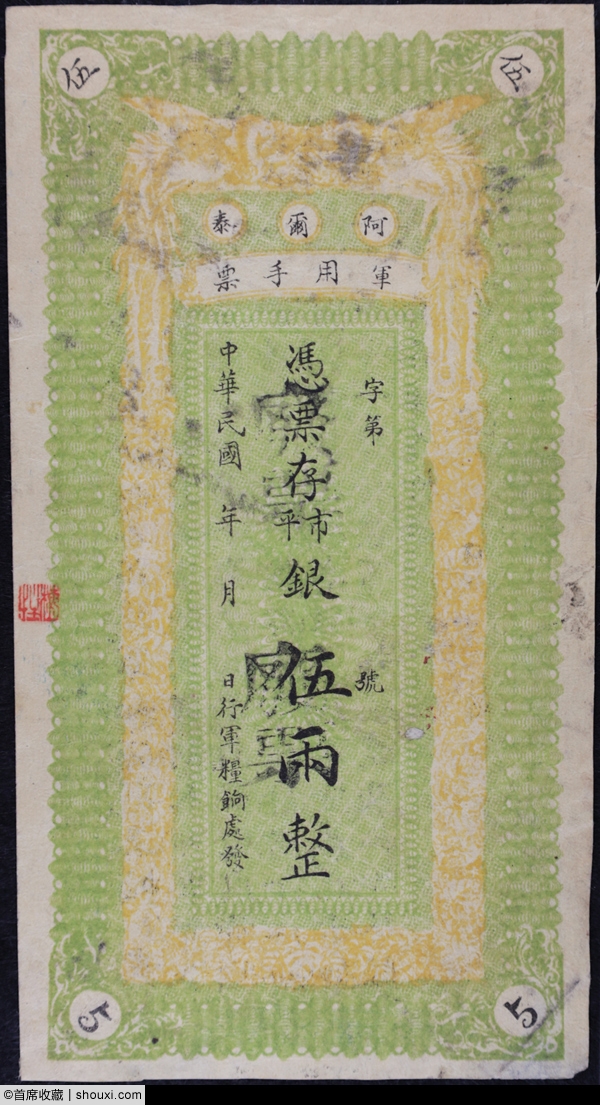 伍
伍
阿爾泰
軍用手票
字第
號
憑票存市平銀伍兩整
中華民國 年 月 日行軍糧餉處發
5
5
©首席收藏 | shouxi.com